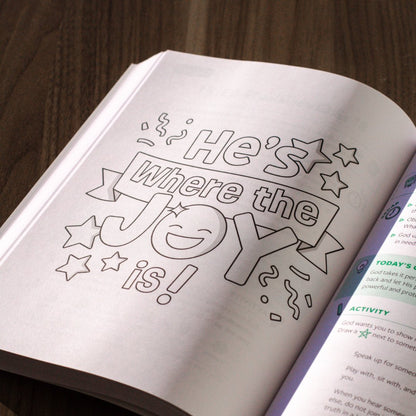 He's
Where the
JOY
is!
TODAY'S
God
back and let His
powerful and
ACTIVITY
God wants you to show
Draw a
next to
Speak up for
Play with, sit with, and
you.
When you hear
else, do not